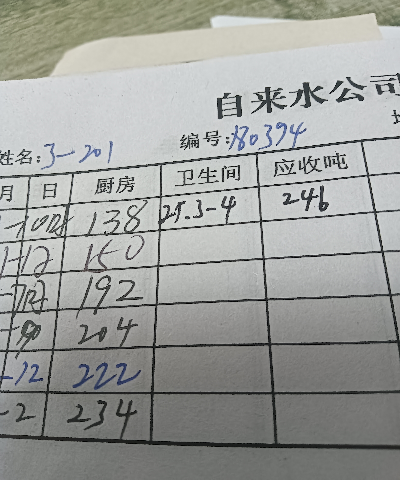 自来水公司
姓名: 3-201 编号: 180394
月 日 厨房 卫生间 应收吨
138 25.3-4 246
150
192
204
-12 222
-2 234